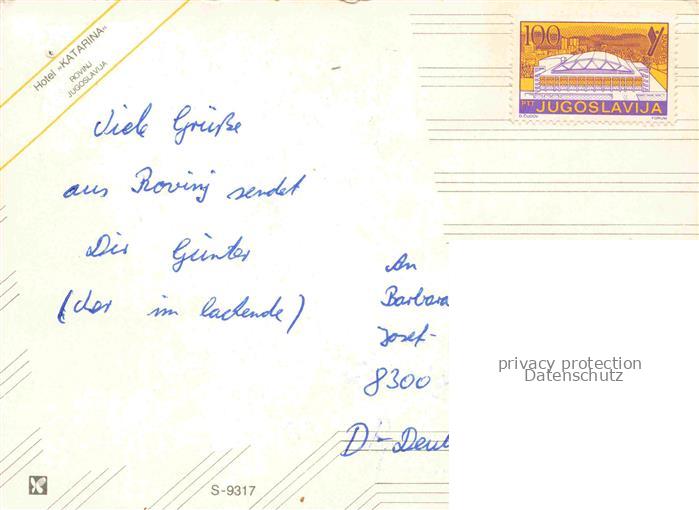 Hotel »KATARINA«
ROVINJ
JUGOSLAVIJA
100
PTT JUGOSLAVIJA
D. ČUDOV FORUM
Viele Grüße
aus Rovinj sendet
Dir Günter
(der im lachende)
An
Barbara
Josef-
8300
D-Deut
privacy protection
Datenschutz
S-9317